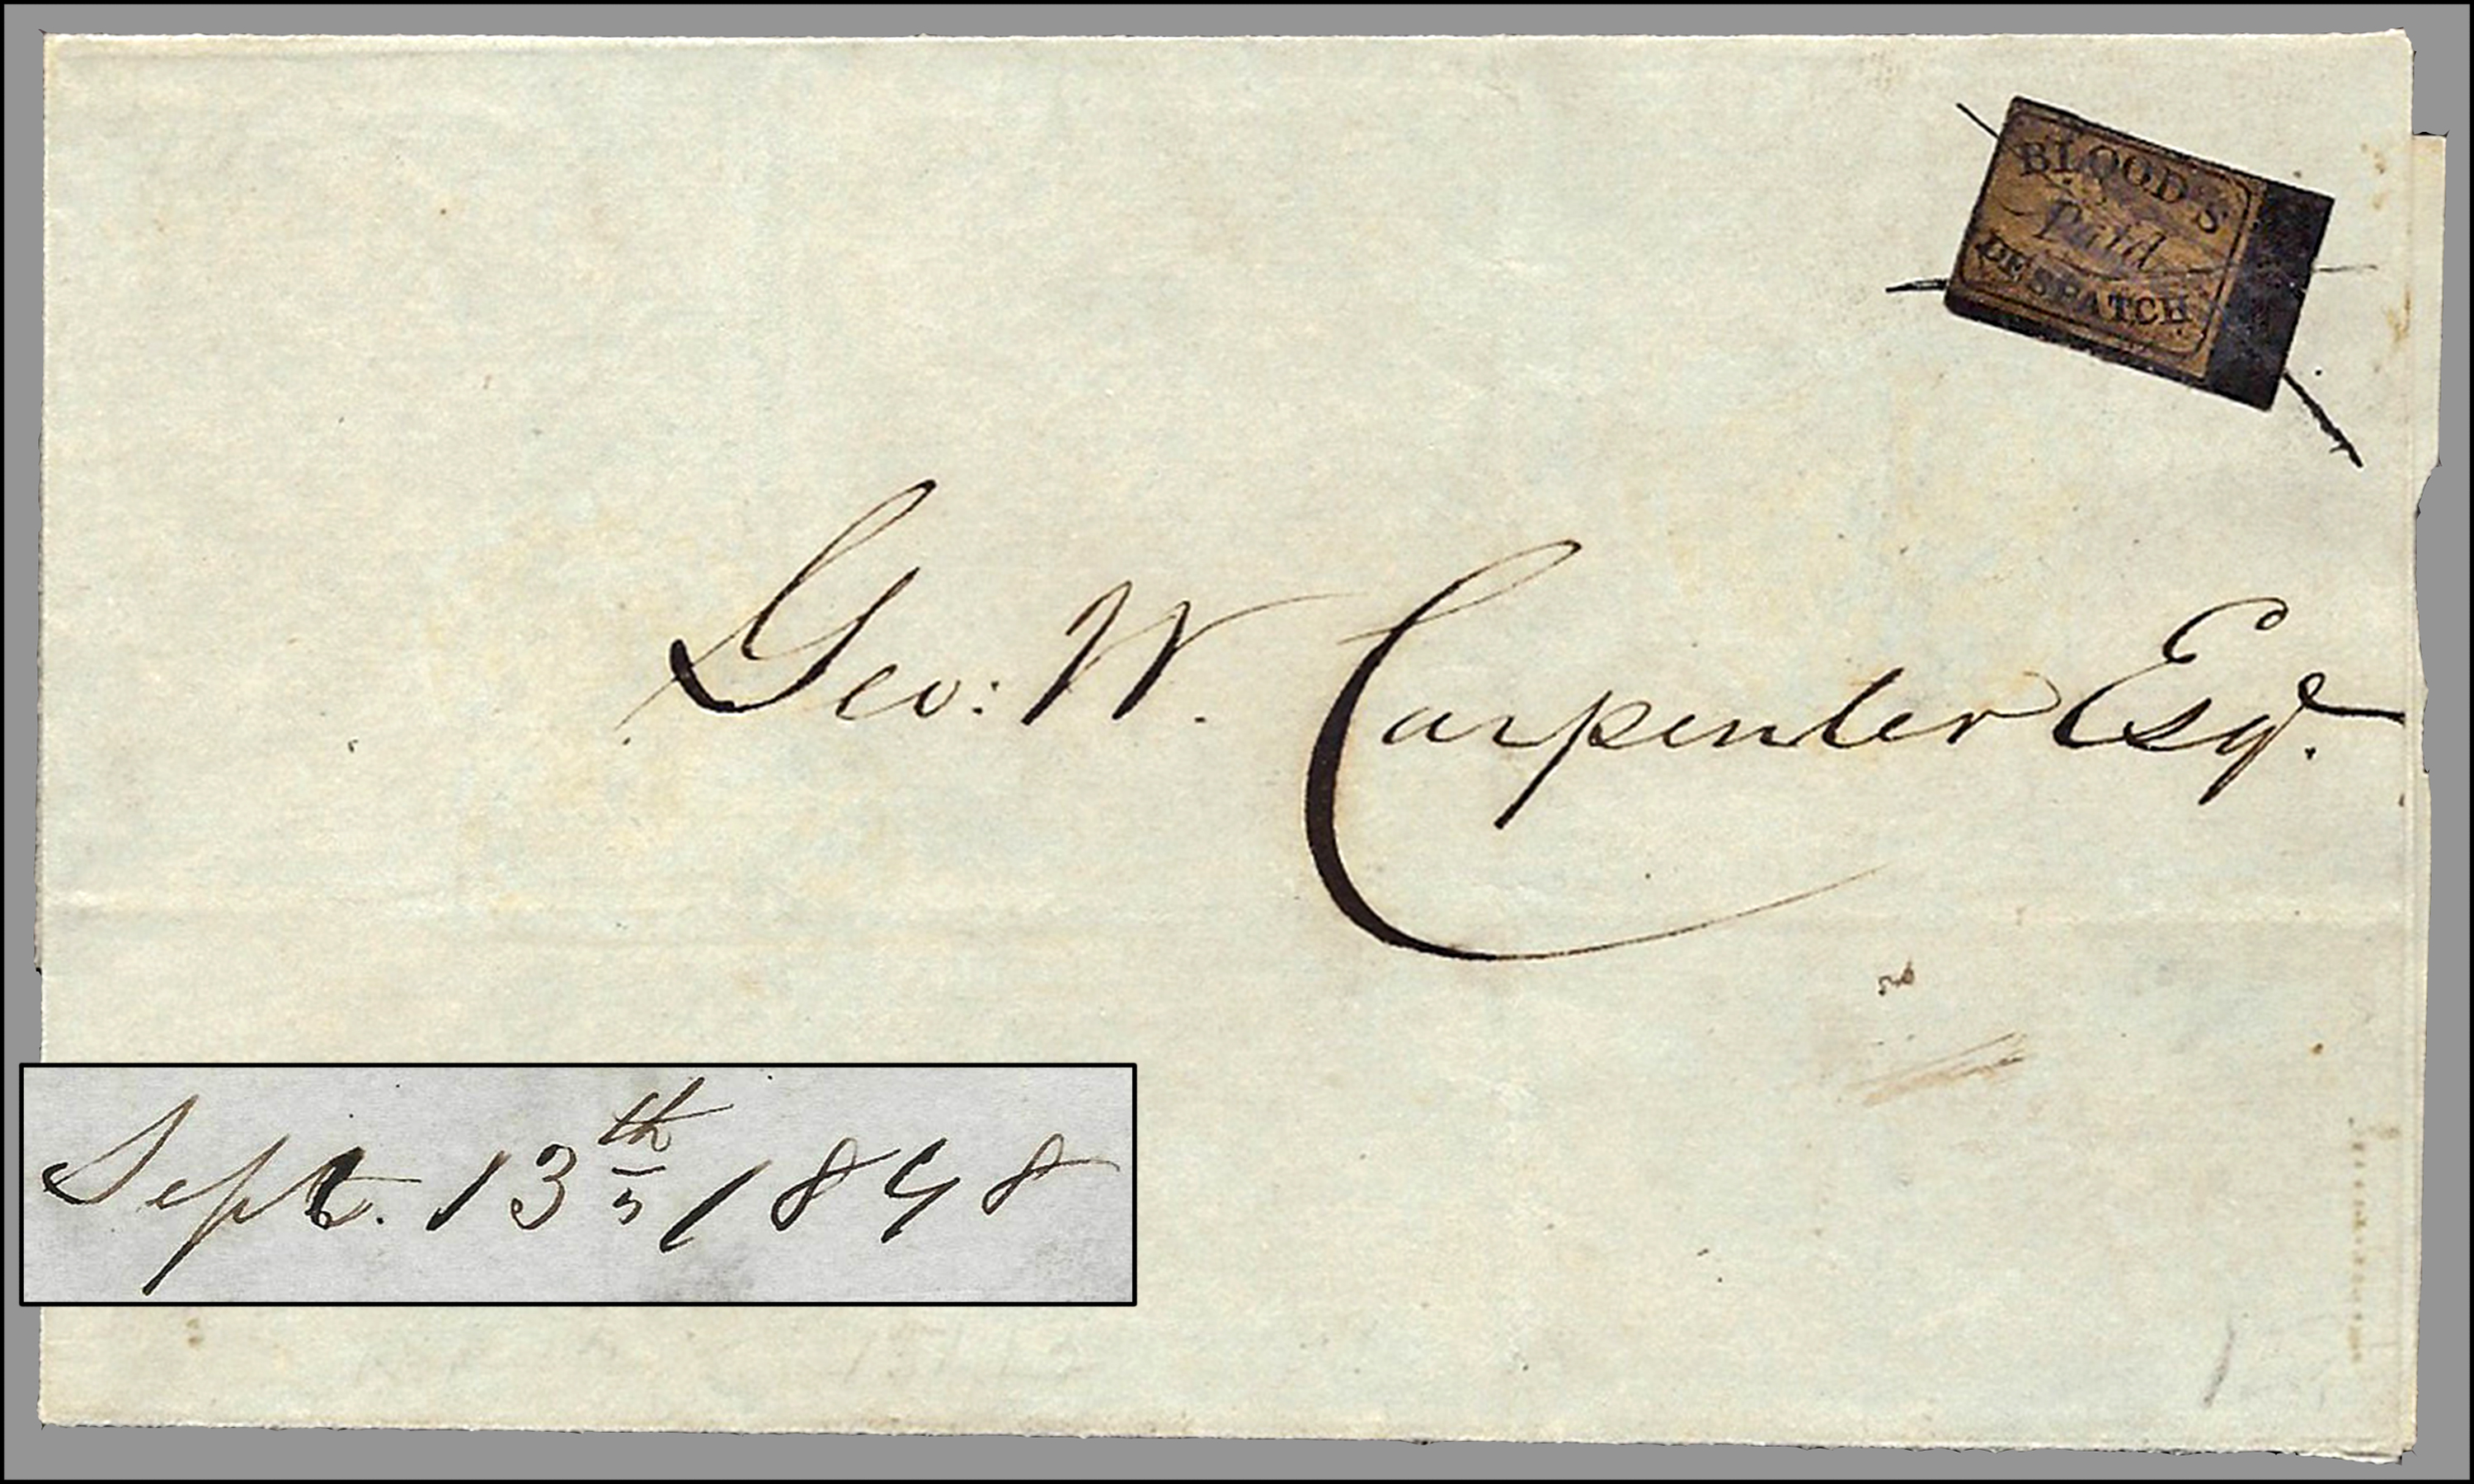 BLOOD'S
Paid
DESPATCH
Geo: W. Carpenter Esqr.
Sept. 13th 1848